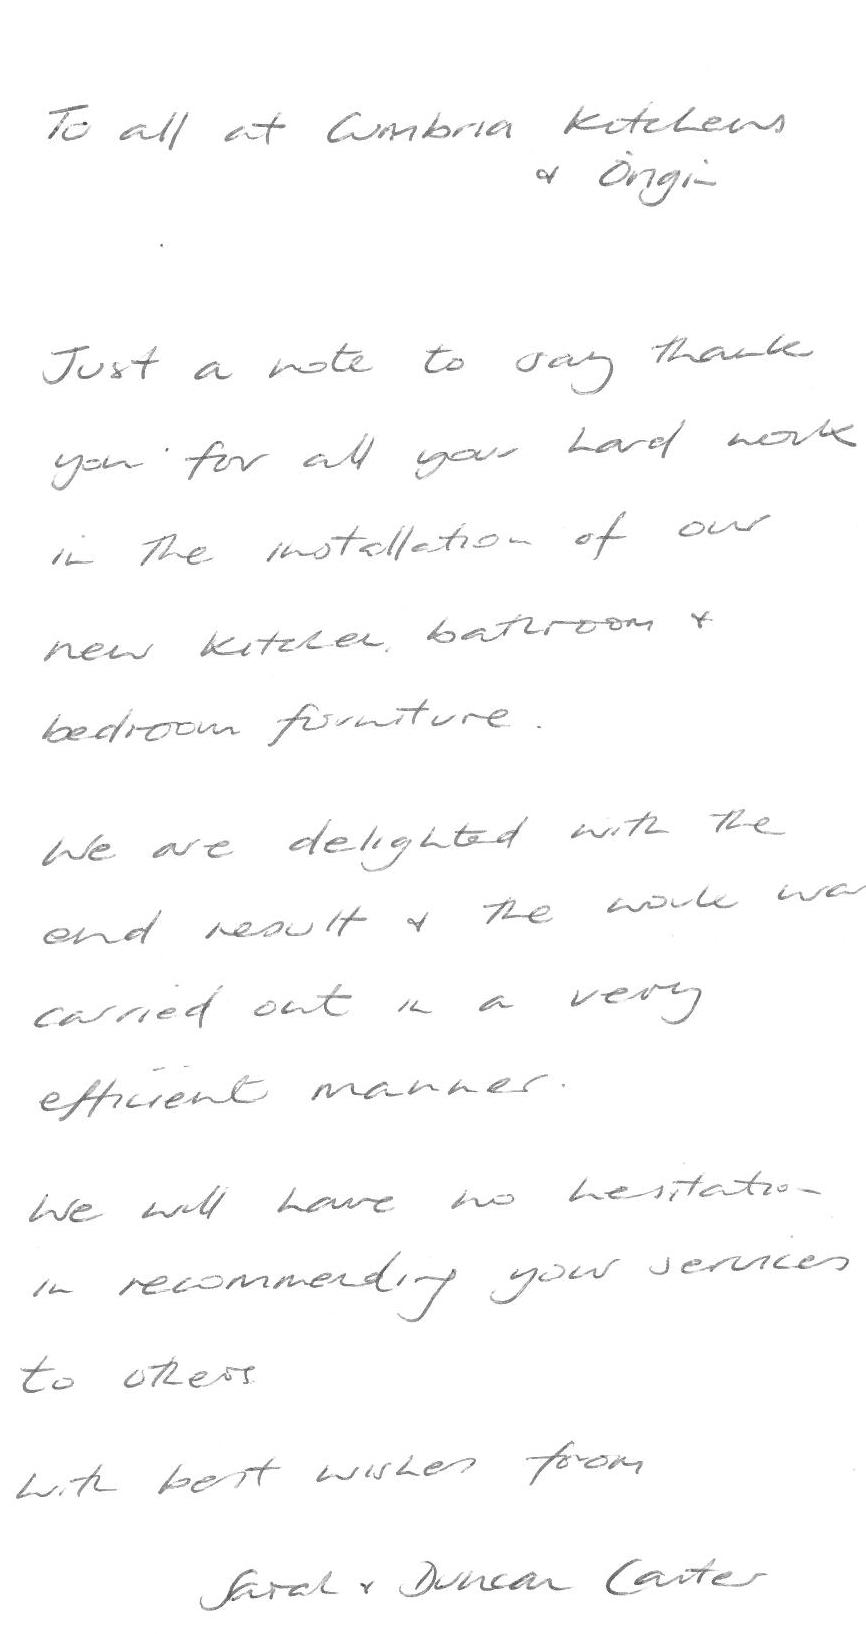 To all at Cumbria Kitchens
& Origin
Just a note to say thank
you for all your hard work
in the installation of our
new kitchen, bathroom &
bedroom furniture.
We are delighted with the
end result & the work was
carried out in a very
efficient manner.
We will have no hesitation
in recommending your services
to others
With best wishes from
Sarah & Duncan Carter